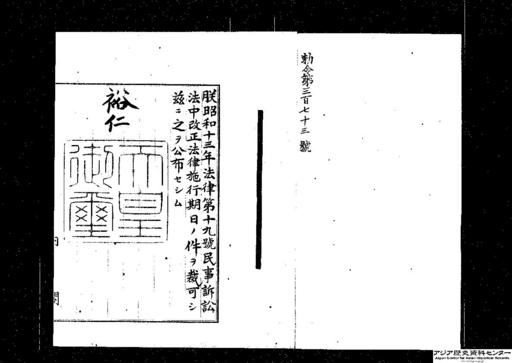 勅令第三百七十三號
朕昭和十三年法律第十九號民事訴訟
法中改正法律施行期日ノ件ヲ裁可シ
茲ニ之ヲ公布セシム
裕仁
天皇
御璽
内
閣
アジア歴史資料センター
Japan Center for Asian Historical Records